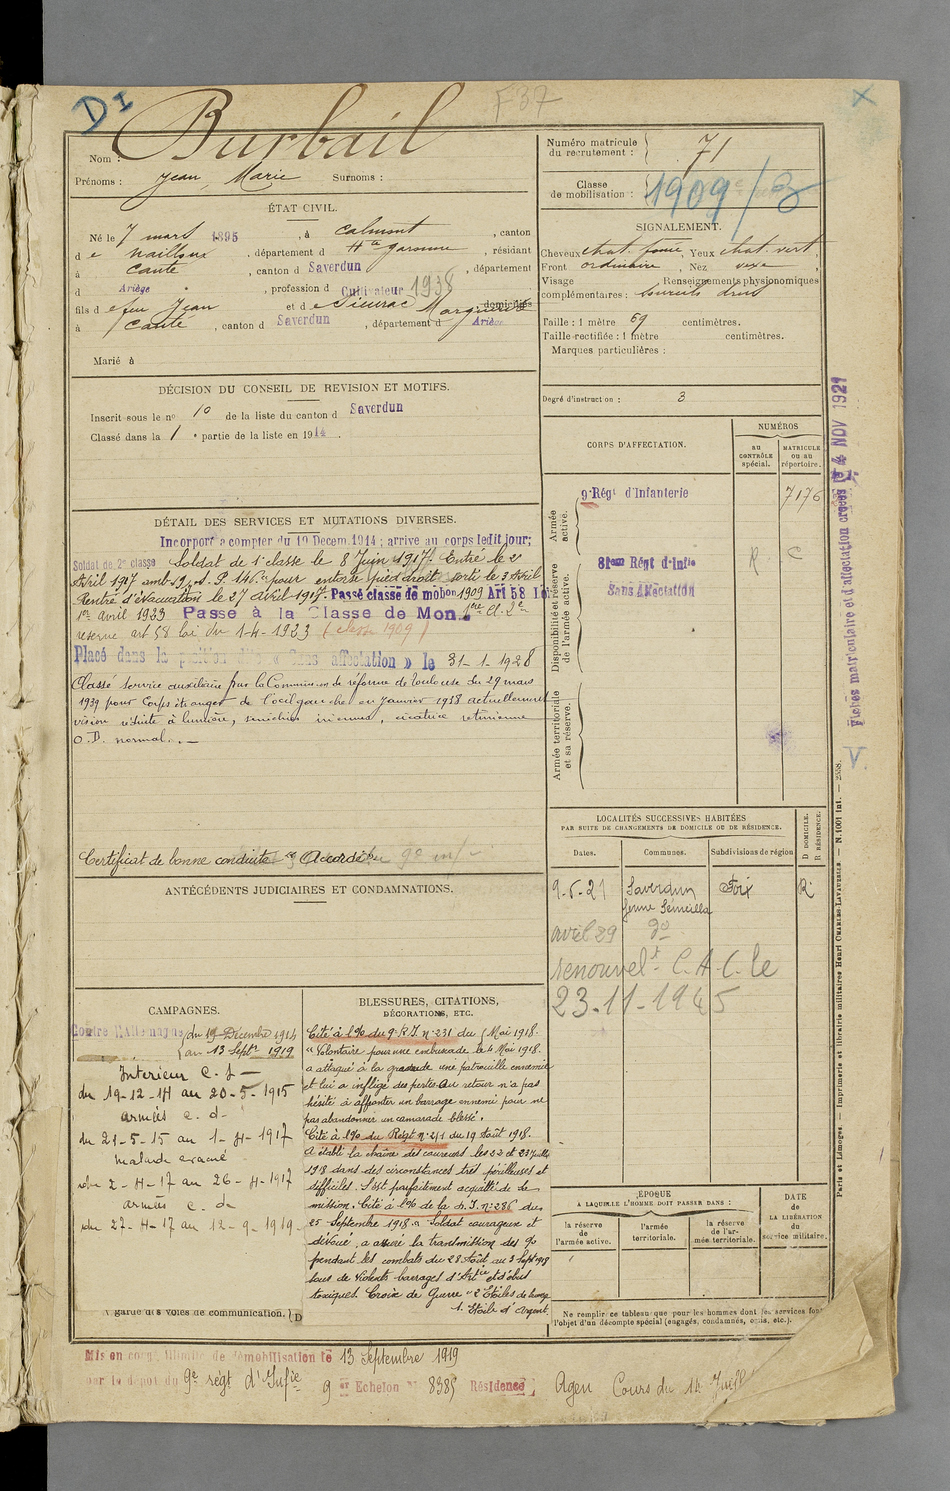 DI
F37
X
Nom : Burbail
Prénoms : Jean, Marie Surnoms :
Numéro matricule du recrutement : 71
Classe de mobilisation : 1909 / 3
ÉTAT CIVIL.
Né le 7 mars 1895, à Calmont, canton
de Nailloux, département d Hte Garonne, résidant
à Canté, canton d Saverdun, département
d Ariège, profession d Cultivateur 1938
fils de feu Jean et de Pieurac Marguerite domiciliés
à Canté, canton d Saverdun, département d Ariège
Marié à
SIGNALEMENT.
Cheveux chat. foncé, Yeux chat. vert
Front ordinaire, Nez vexe,
Visage Renseignements physionomiques
complémentaires : Sourcils droits
Taille : 1 mètre 69 centimètres.
Taille rectifiée : 1 mètre centimètres.
Marques particulières :
Degré d'instruction : 3
DÉCISION DU CONSEIL DE REVISION ET MOTIFS.
Inscrit sous le no 10 de la liste du canton d Saverdun
Classé dans la 1e partie de la liste en 1914.
DÉTAIL DES SERVICES ET MUTATIONS DIVERSES.
Incorporé à compter du 19 Decem. 1914 ; arrivé au corps ledit jour;
Soldat de 2e classe Soldat de 1e classe le 8 Juin 1917. Entré le 2
Avril 1917 amb. 1/9 S.P. 146 pour entorse pied droit sorti le 3 Avril
Rentré d'évacuation le 27 Avril 1917. Passé classe de mobon 1909 Art 58 Loi
1er avril 1923 Passé à la Classe de Mon. 1ère Cl. 2e
réserve art 58 loi du 1-4-1923 (classe 1909)
Placé dans la position dite « Sans affectation » le 31-1-1928
Classé service auxiliaire par la Commission de réforme de Toulouse du 29 mars
1939 pour Corps étranger de l'oeil gauche en Janvier 1938 actuellement
vision réduite à lumière, cicatrice rétinienne
O.D. normal. —
Certificat de bonne conduite Accordé
ANTÉCÉDENTS JUDICIAIRES ET CONDAMNATIONS.
CORPS D'AFFECTATION.
NUMÉROS
AU CONTRÔLE spécial.
MATRICULE OU AU répertoire.
Armée active.
9e Régt d'Infanterie 7176
Disponibilité et réserve de l'armée active.
81eme Régt d'Infie R C
Sans Affectation
Armée territoriale et sa réserve.
Fiches matriculaire et d'affectation créées le 4 NOV 1921
V
LOCALITÉS SUCCESSIVES HABITÉES
PAR SUITE DE CHANGEMENTS DE DOMICILE OU DE RÉSIDENCE.
Dates. Communes. Subdivisions de région
D DOMICILE. R RÉSIDENCE.
9-5-21 Saverdun Foix R
ferme
avril 29 do
renouvelt C.A.C. le
23-11-1945
CAMPAGNES.
Contre l'Allemagne du 19 Décembre 1914
au 13 Septbre 1919
Intérieur C. S —
du 19-12-14 au 20-5-1915
armées c. d
du 21-5-15 au 1-4-1917
malade évacué
du 2-4-17 au 26-4-1917
armées c. d
du 27-4-17 au 12-9-1919
(garde des voies de communication.)
BLESSURES, CITATIONS,
DÉCORATIONS, ETC.
Cité à l'O/ du 9e R.I. n° 231 du Mai 1918.
"Volontaire pour une embuscade le 4 Mai 1918.
a attaqué à la grenade une patrouille ennemie
et lui a infligé des pertes. Au retour n'a pas
hésité à affronter un barrage ennemi pour ne
pas abandonner un camarade blessé.
Cité à l'O/ du Régt n° 241 du 19 Août 1918.
A établi la chaîne des coureurs les 22 et 23 Juillet
1918 dans des circonstances très périlleuses et
difficiles. S'est parfaitement acquitté de sa
mission. Cité à l'O/ de la D.I. n° 286 du
25 Septembre 1918. Soldat courageux et
dévoué, a assuré la transmission des
pendant les combats du 28 Août au 3 Sept 1918
sous de violents barrages d'Artie et d'obus
toxiques. Croix de Guerre 2 Etoiles de bronze
1 Etoile d'argent
ÉPOQUE
A LAQUELLE L'HOMME DOIT PASSER DANS :
la réserve de l'armée active.
l'armée territoriale.
la réserve de l'armée territoriale.
DATE de LA LIBÉRATION du service militaire.
Ne remplir ce tableau que pour les hommes dont les services font
l'objet d'un décompte spécial (engagés, condamnés, omis, etc.).
Paris et Limoges. — Imprimerie et librairie militaires Henri CHARLES-LAVAUZELLE. — N. 1001 Int. — 2558.
Mis en congé illimité de démobilisation le 13 Septembre 1919
par le dépôt du 9e régt d'Infie 9e Echelon N° 8385 Résidence Agen Cours du 14 Juillet